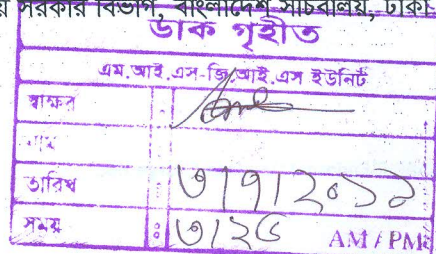 সরকার বিভাগ, বাংলাদেশ সচিবালয়, ঢাকা
ডাক গৃহীত
এম.আই.এস-জি.আই.এস ইউনিট
স্বাক্ষর
নাম
তারিখ : ৩/৭/২০১১
সময় : ৩/২৫ AM / PM